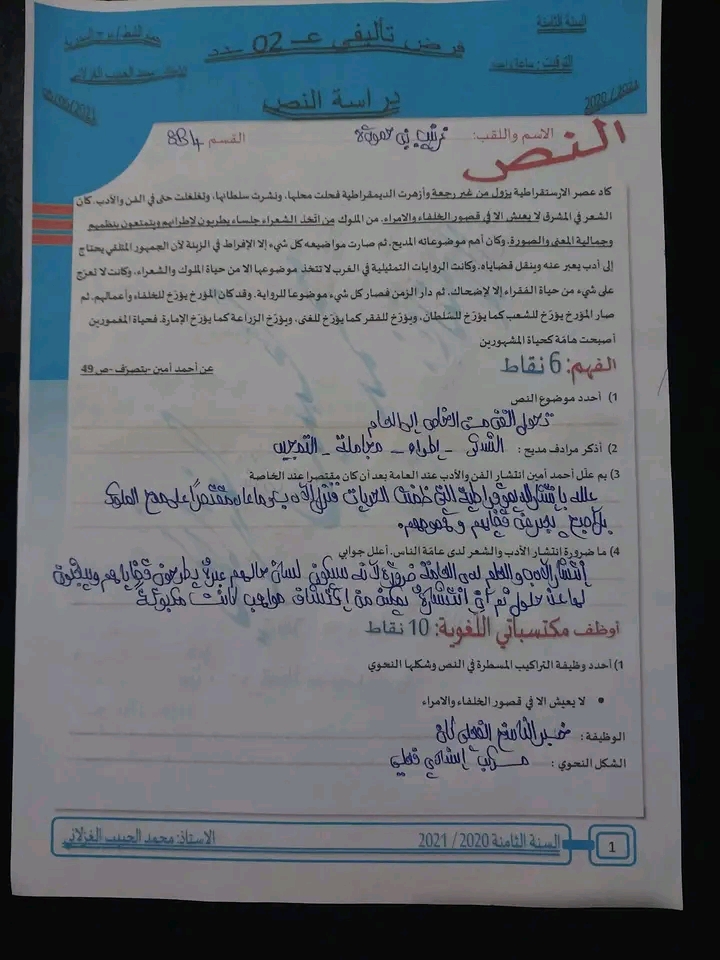 السنة الثامنة
فرض تأليفي عـ 02 ـدد
التوقيت: ساعة واحدة
الأستاذ: محمد الحبيب الغزلاني
2020/2021
دراسة النص
النص
الاسم واللقب: زينب بن حمودة
القسم 8B4
كاد عصر الارستقراطية يزول من غير رجعة وأزهرت الديمقراطية فحلت محلها، ونشرت سلطانها، وتغلغلت حتى في الفن والأدب. كان
الشعر في المشرق لا يعيش الا في قصور الخلفاء والامراء. من الملوك من اتخذ الشعراء جلساء يطربون لإطرائهم ويتمتعون بنظمهم
وجمالية المعنى والصورة. وكان أهم موضوعاته المديح. ثم صارت مواضيعه كل شيء إلا الإفراط في الزينة لأن الجمهور المتلقي يحتاج
إلى أدب يعبر عنه وينقل قضاياه. وكانت الروايات التمثيلية في الغرب لا تتخذ موضوعها الا من حياة الملوك والشعراء. وكانت لا تعرج
على شيء من حياة الفقراء إلا لإضحاك. ثم دار الزمن فصار كل شيء موضوعا للرواية. وقد كان المؤرخ يؤرّخ للخلفاء وأعمالهم. ثم
صار المؤرخ يؤرّخ للشعب كما يؤرّخ للسّلطان، ويؤرّخ للفقر كما يؤرّخ للغنى، ويؤرّخ الزراعة كما يؤرّخ الإمارة. فحياة المغمورين
أصبحت هامّة كحياة المشهورين
عن أحمد أمين -بتصرف -ص 49
الفهم: 6 نقاط
1) أحدد موضوع النص
تحول الفن من الخاص إلى العام
2) أذكر مرادف مديح: الشكر - إطراء - مجاملة - التمجيد
3) بم علّل أحمد أمين انتشار الفن والأدب عند العامة بعد أن كان مقتصرا عند الخاصة
علله بانتشار الديموقراطية التي ضمنت الحريات فنزل الأدب وما عاد مقتصرا على مدح الملوك
بل أصبح يعبر عن قضايهم و همومهم.
4) ما ضرورة انتشار الأدب والشعر لدى عامّة الناس. أعلل جوابي
إنتشار الأدب و العلم لدى العامة ضرورة لأنه سيكون لسان حالهم عبره يطرحون قضاياهم ويبحثون
لها عن حلول ثم أن انتشاره يمكن من إكتشاف مواهب كانت مكبوتة
أوظف مكتسباتي اللغوية: 10 نقاط
1) أحدد وظيفة التراكيب المسطرة في النص وشكلها النحوي
• لا يعيش الا في قصور الخلفاء والامراء
الوظيفة: خبر الناسخ الفعلي كان
الشكل النحوي: مركب إسنادي فعلي
1
السنة الثامنة 2020/ 2021
الاستاذ: محمد الحبيب الغزلاني